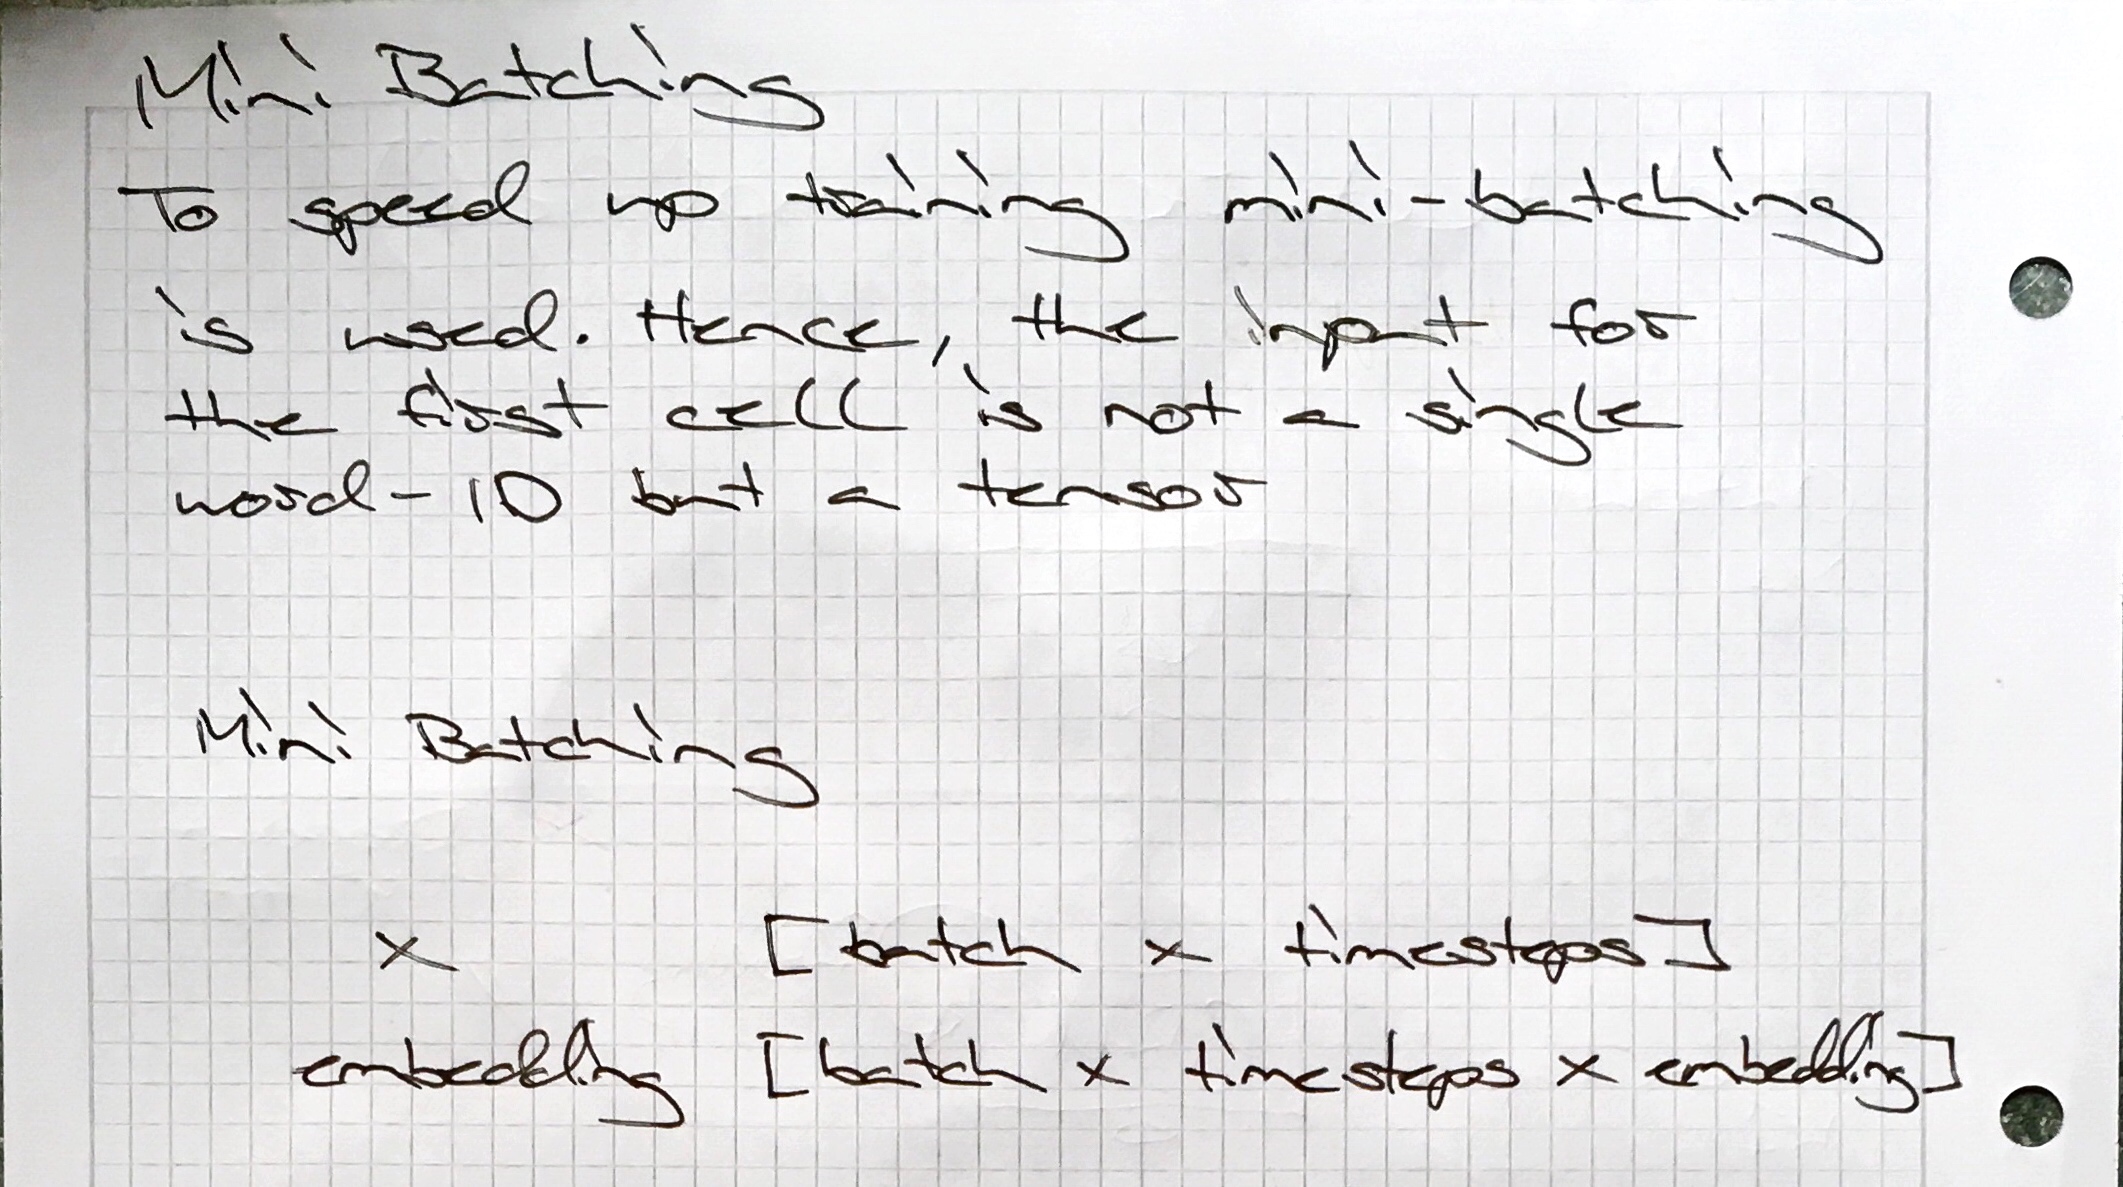 Mini Batching
To speed up training mini-batching
is used. Hence, the input for
the first cell is not a single
word-ID but a tensor
Mini Batching
x [batch x timesteps]
embedding [batch x timesteps x embedding]